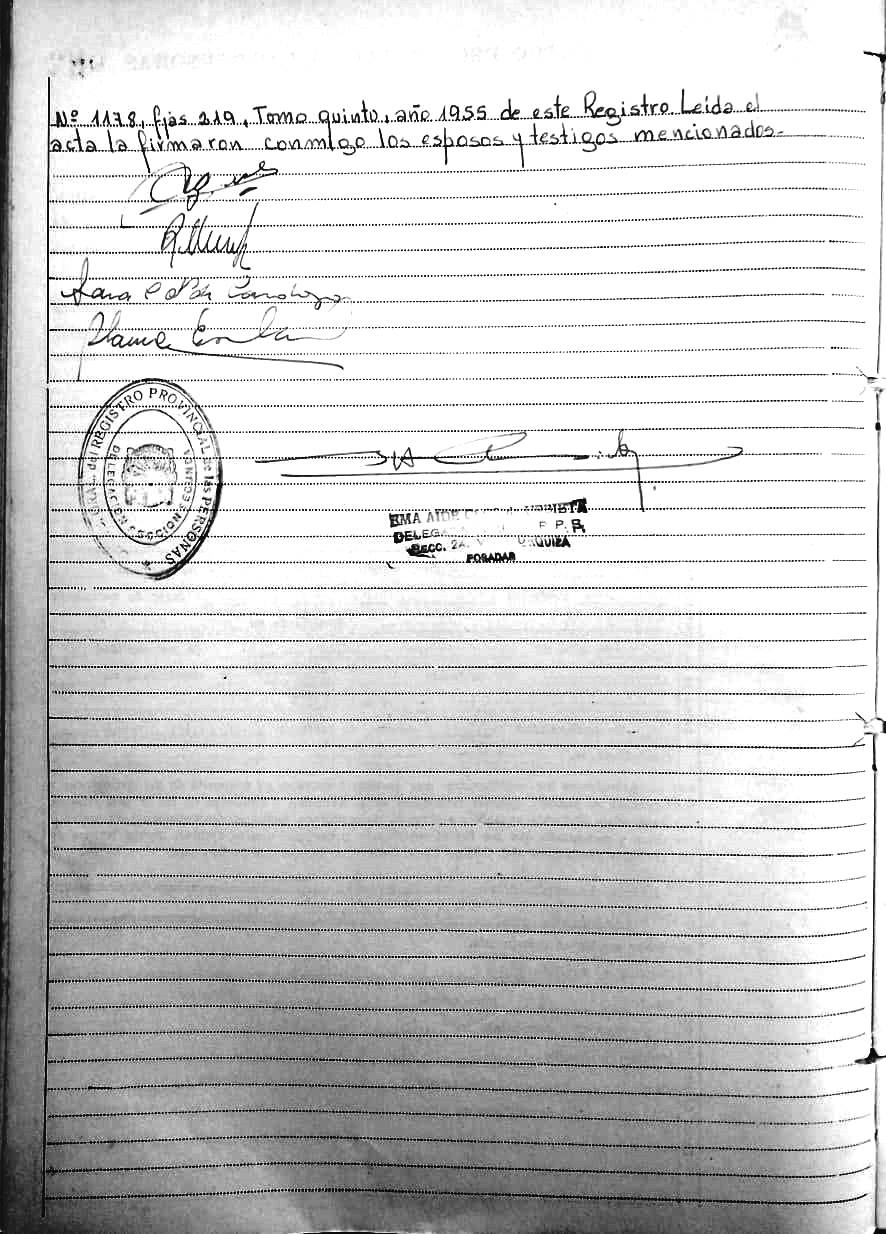 Nº 1178, fjas 219, Tomo quinto, año 1955 de este Registro Leída el
acta la firmaron conmigo los esposos y testigos mencionados-
Sara
GRAL. del REGISTRO PROVINCIAL de las PERSONAS
DELEGACION SECCION SEGUNDA
EMA AIDE
DELEGA P. P.
SECC. 2A. URQUIZA
POSADAS